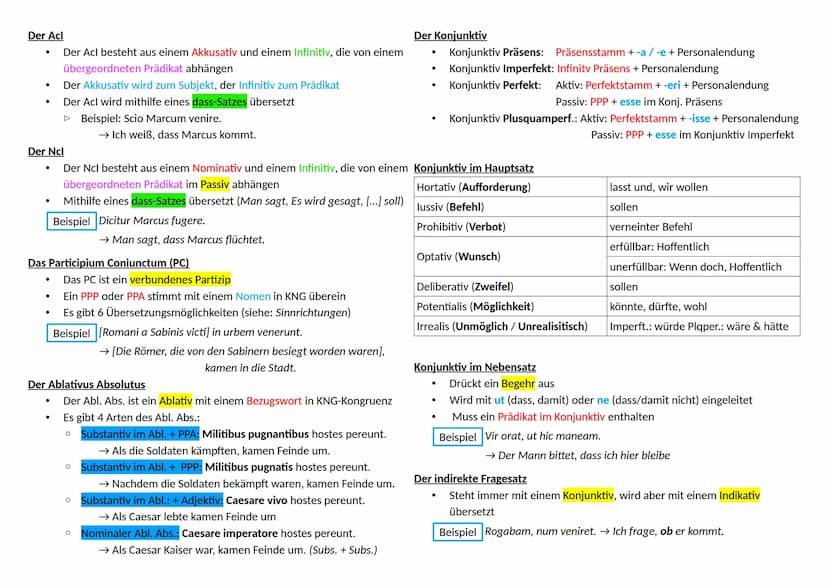 Der AcI
• Der AcI besteht aus einem Akkusativ und einem Infinitiv, die von einem
übergeordneten Prädikat abhängen
• Der Akkusativ wird zum Subjekt, der Infinitiv zum Prädikat
• Der AcI wird mithilfe eines dass-Satzes übersetzt
▷ Beispiel: Scio Marcum venire.
→ Ich weiß, dass Marcus kommt.
Der NcI
• Der NcI besteht aus einem Nominativ und einem Infinitiv, die von einem
übergeordneten Prädikat im Passiv abhängen
• Mithilfe eines dass-Satzes übersetzt (Man sagt, Es wird gesagt, [...] soll)
Beispiel Dicitur Marcus fugere.
→ Man sagt, dass Marcus flüchtet.
Das Participium Coniunctum (PC)
• Das PC ist ein verbundenes Partizip
• Ein PPP oder PPA stimmt mit einem Nomen in KNG überein
• Es gibt 6 Übersetzungsmöglichkeiten (siehe: Sinnrichtungen)
Beispiel [Romani a Sabinis victi] in urbem venerunt.
→ [Die Römer, die von den Sabinern besiegt worden waren],
kamen in die Stadt.
Der Ablativus Absolutus
• Der Abl. Abs. ist ein Ablativ mit einem Bezugswort in KNG-Kongruenz
• Es gibt 4 Arten des Abl. Abs.:
○ Substantiv im Abl. + PPA: Militibus pugnantibus hostes pereunt.
→ Als die Soldaten kämpften, kamen Feinde um.
○ Substantiv im Abl. + PPP: Militibus pugnatis hostes pereunt.
→ Nachdem die Soldaten bekämpft waren, kamen Feinde um.
○ Substantiv im Abl.: + Adjektiv: Caesare vivo hostes pereunt.
→ Als Caesar lebte kamen Feinde um
○ Nominaler Abl. Abs.: Caesare imperatore hostes pereunt.
→ Als Caesar Kaiser war, kamen Feinde um. (Subs. + Subs.)
Der Konjunktiv
• Konjunktiv Präsens: Präsensstamm + -a / -e + Personalendung
• Konjunktiv Imperfekt: Infinitv Präsens + Personalendung
• Konjunktiv Perfekt: Aktiv: Perfektstamm + -eri + Personalendung
Passiv: PPP + esse im Konj. Präsens
• Konjunktiv Plusquamperf.: Aktiv: Perfektstamm + -isse + Personalendung
Passiv: PPP + esse im Konjunktiv Imperfekt
Konjunktiv im Hauptsatz
Hortativ (Aufforderung) lasst und, wir wollen
Iussiv (Befehl) sollen
Prohibitiv (Verbot) verneinter Befehl
Optativ (Wunsch) erfüllbar: Hoffentlich
unerfüllbar: Wenn doch, Hoffentlich
Deliberativ (Zweifel) sollen
Potentialis (Möglichkeit) könnte, dürfte, wohl
Irrealis (Unmöglich / Unrealisitisch) Imperft.: würde Plqper.: wäre & hätte
Konjunktiv im Nebensatz
• Drückt ein Begehr aus
• Wird mit ut (dass, damit) oder ne (dass/damit nicht) eingeleitet
• Muss ein Prädikat im Konjunktiv enthalten
Beispiel Vir orat, ut hic maneam.
→ Der Mann bittet, dass ich hier bleibe
Der indirekte Fragesatz
• Steht immer mit einem Konjunktiv, wird aber mit einem Indikativ
übersetzt
Beispiel Rogabam, num veniret. → Ich frage, ob er kommt.